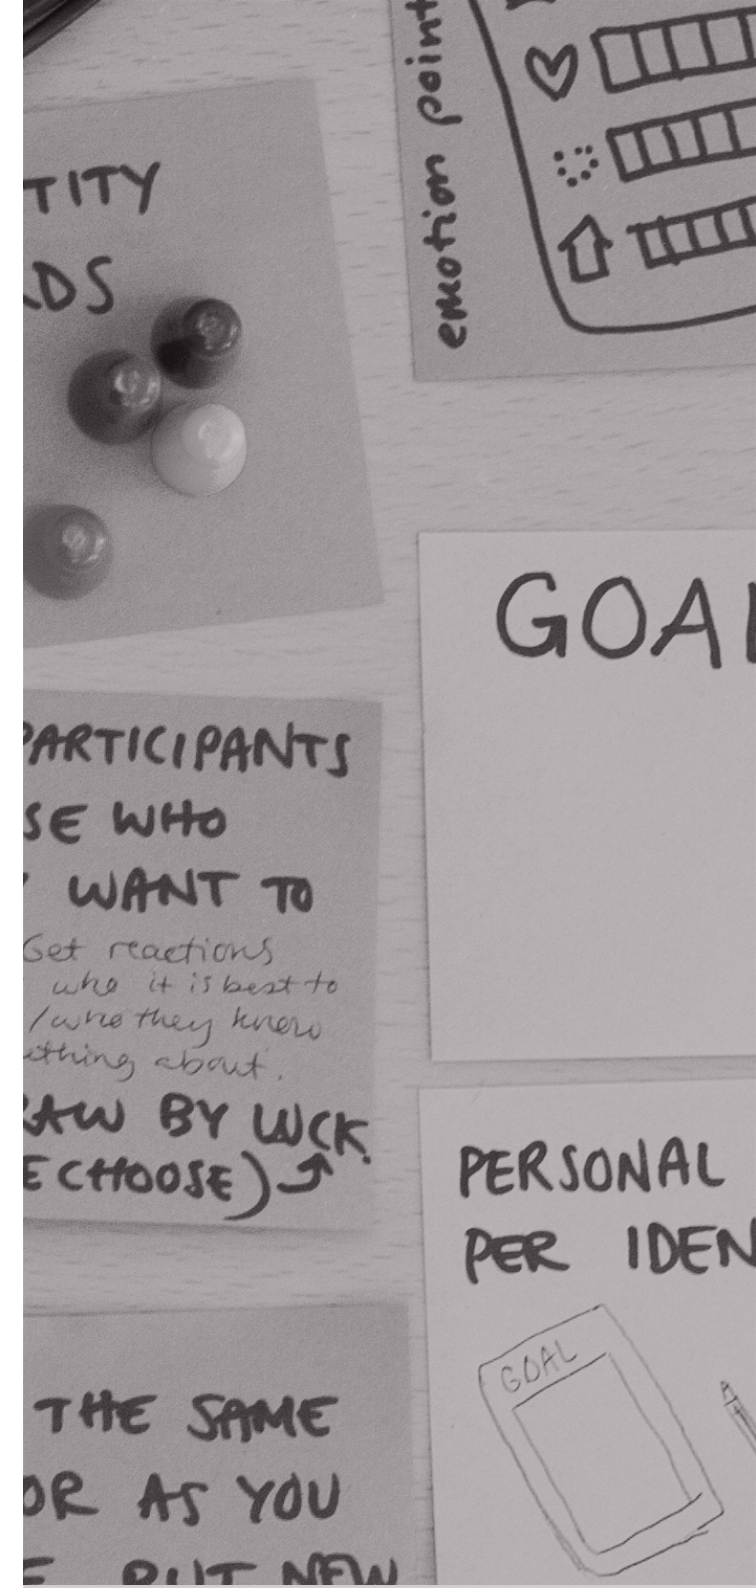 TITY
DS
emotion point
GOAL
PARTICIPANTS
SE WHO
WANT TO
Get reactions
who it is best to
/who they know
ething about.
RAW BY LUCK.
E CHOOSE)
PERSONAL
PER IDEN
GOAL
THE SAME
OR AS YOU
E PUT NEW